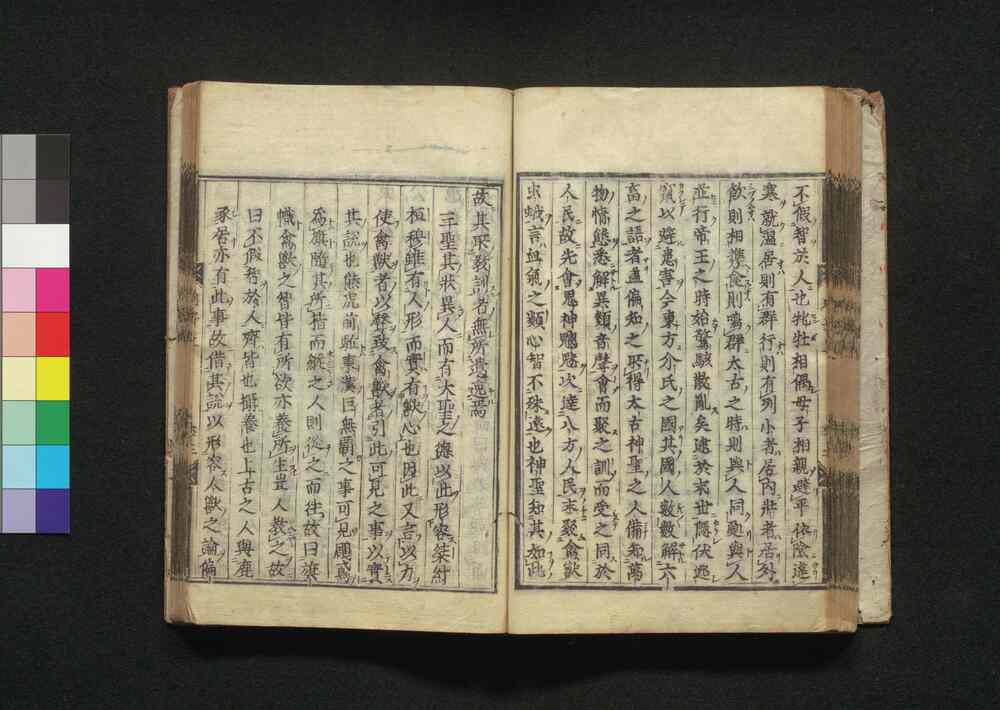 不假智於人也牝牡相偶母子相親避平依險違
寒就溫居則有群行則有列小者居內壯者居外
飲則相攜食則鳴群太古之時則與人同處與人
並行帝王之時始驚駭散亂矣逮於末世隱伏逃
竄以避患害今東方介氏之國其國人數數解六
畜之語者蓋偏知之所得太古神聖之人備知萬
物情態悉解異類音聲會而聚之訓而受之同於
人民故先會鬼神魑魅次達八方人民末聚禽獸
虫蛾言血氣之類心智不殊遠也神聖知其如此
故其所教訓者無所遺逸焉
三聖其狀異人而有大聖之德以此形容桀紂
桓穆雖有人形而實有獸心也因此又言以力
使禽獸者以聲致禽獸者引此可見之事以實
其說也熊虎前驅東漢巨無霸之事可見鵰鶡
為旗隨其所指而縱之人則從之而往故曰旗
幟禽獸之智皆有所欲亦養所生豈人教之故
曰不假智於人齊皆也攝養也上古之人與鹿
豕居亦有此事故借其說以形容人獸之論偏